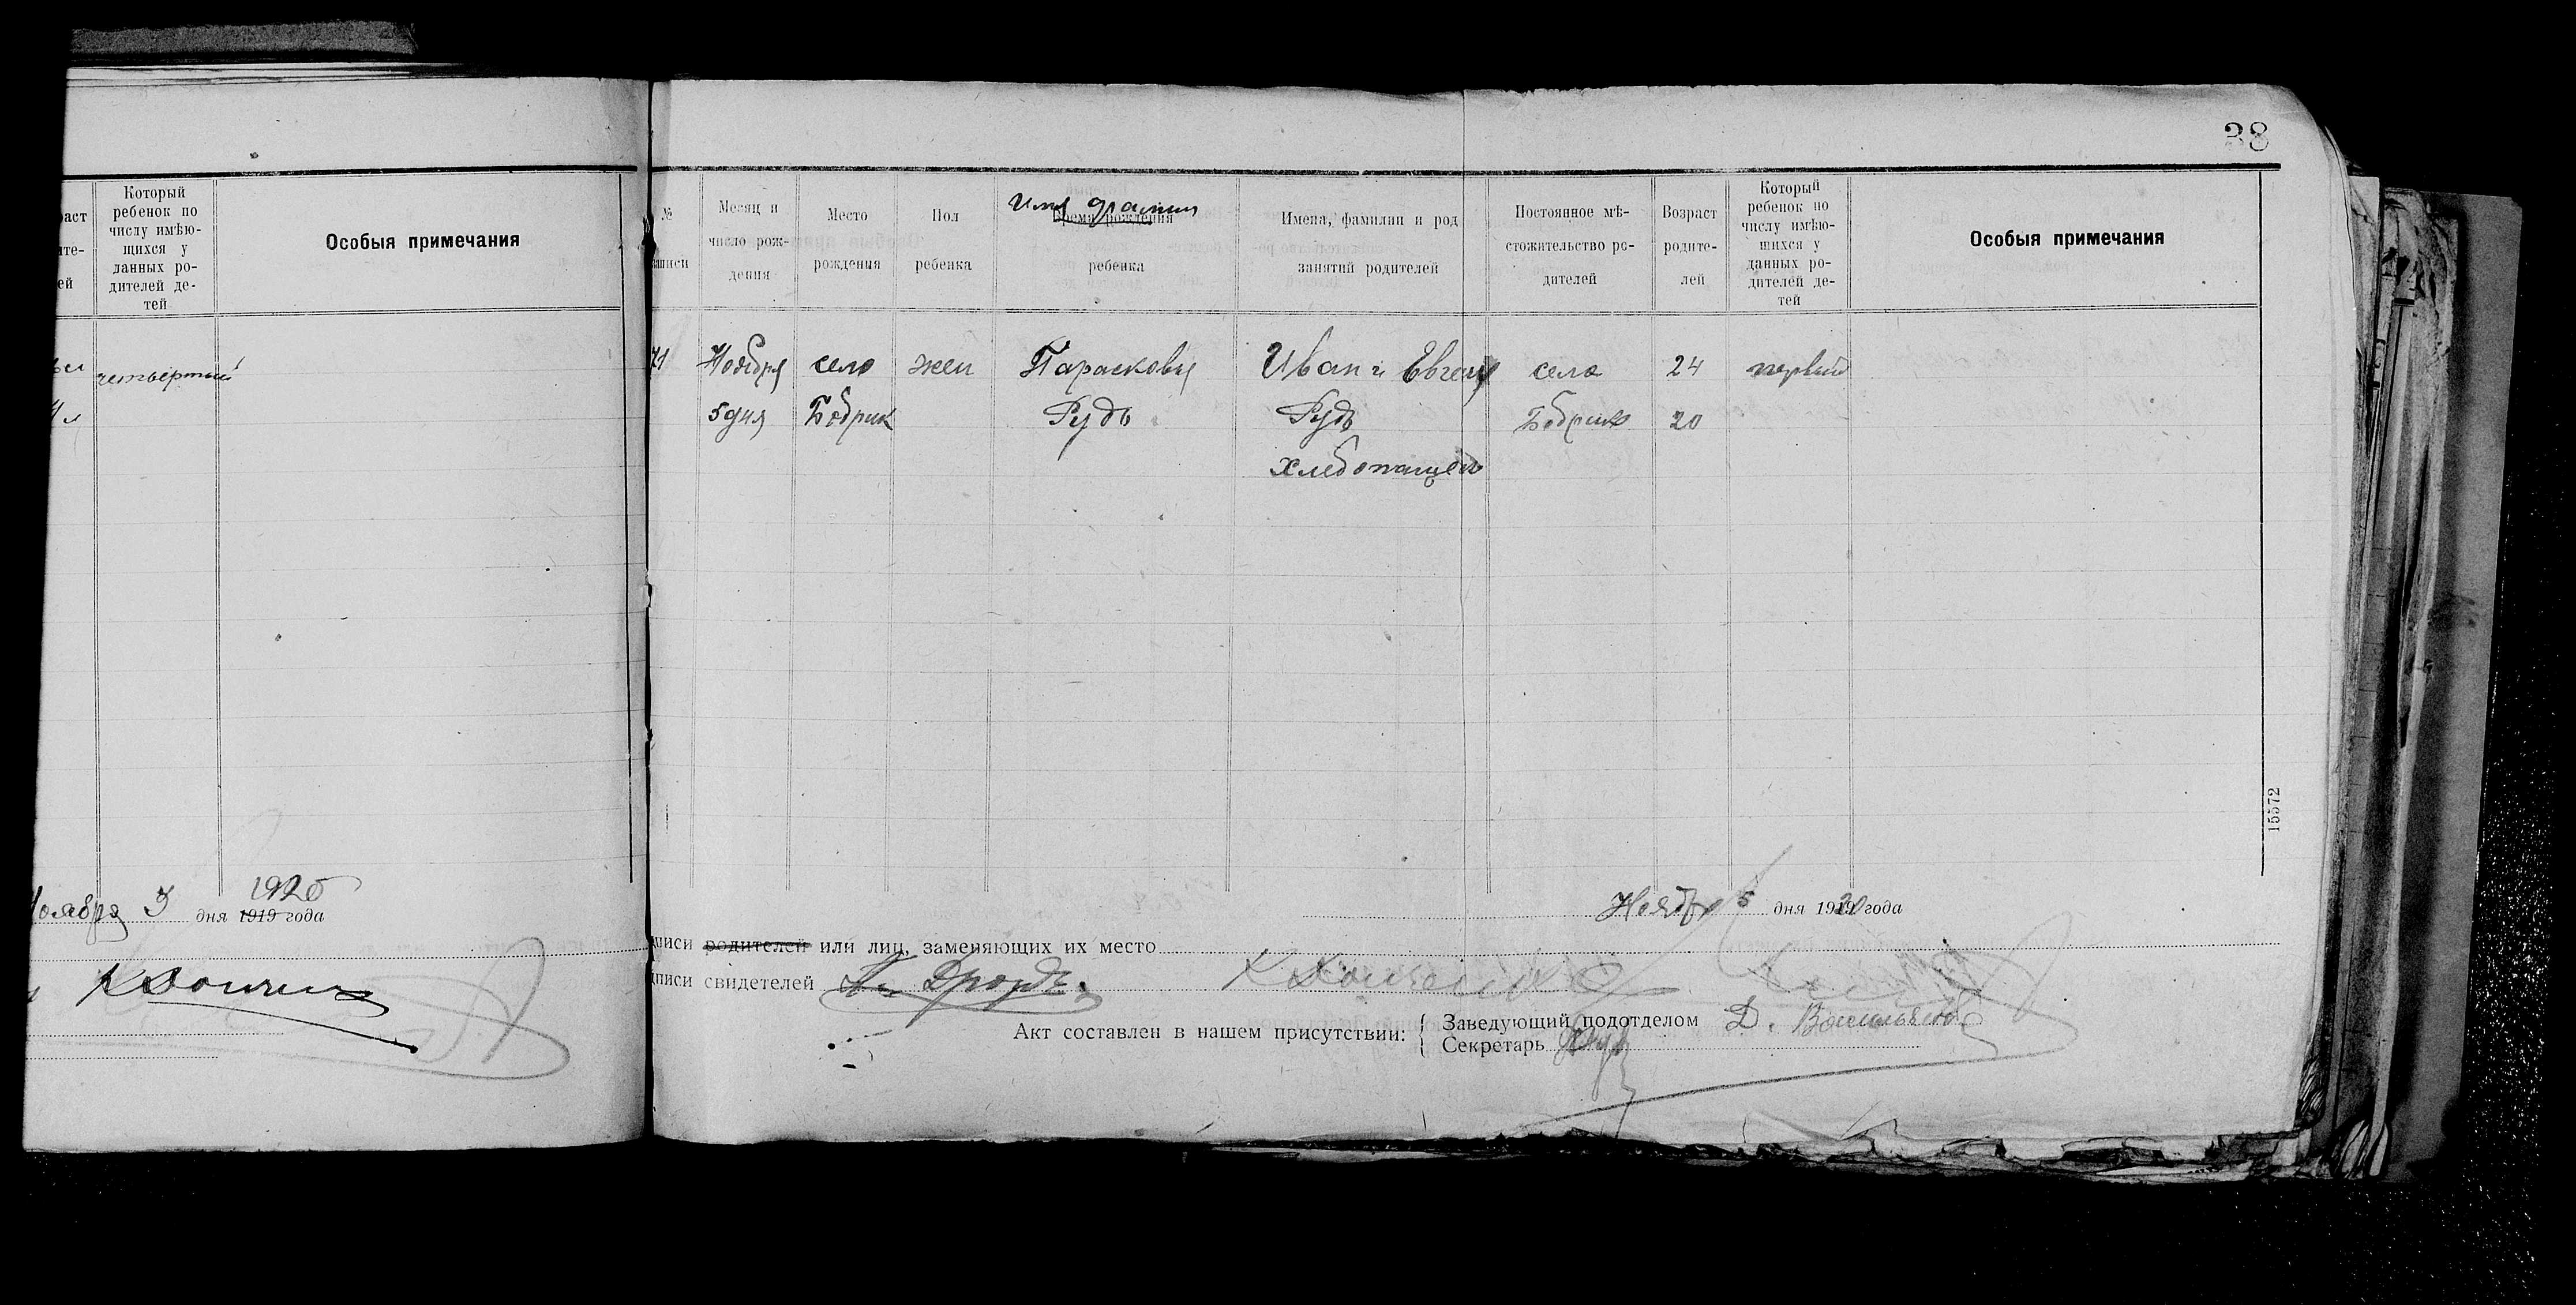 38
Который
ребенок по
числу имѣю-
щихся у
данных ро-
дителей де-
тей
Особыя примечания
четвертый
Ноября 3 дня 1919 года
1920
№
Месяц и
число рож-
дения
Место
рождения
Пол
ребенка
Имя
Время рождения
ребенка
Имена, фамилии и род
занятий родителей
Постоянное мѣ-
стожительство ро-
дителей
Возраст
родите-
лей
Который
ребенок по
числу имѣю-
щихся у
данных ро-
дителей де-
тей
Особыя примечания
71 Ноября село жен Парасковия Иван и Евгения село 24 первый
5 дня Бобрик Рудь Рудь Бобрик 20
хлебопашець
15572
Ноября 5 дня 1920 года
писи родителей или лиц, заменяющих их место
писи свидетелей Дроздъ
Акт составлен в нашем присутствии:
Заведующий подотделом Д.
Секретарь